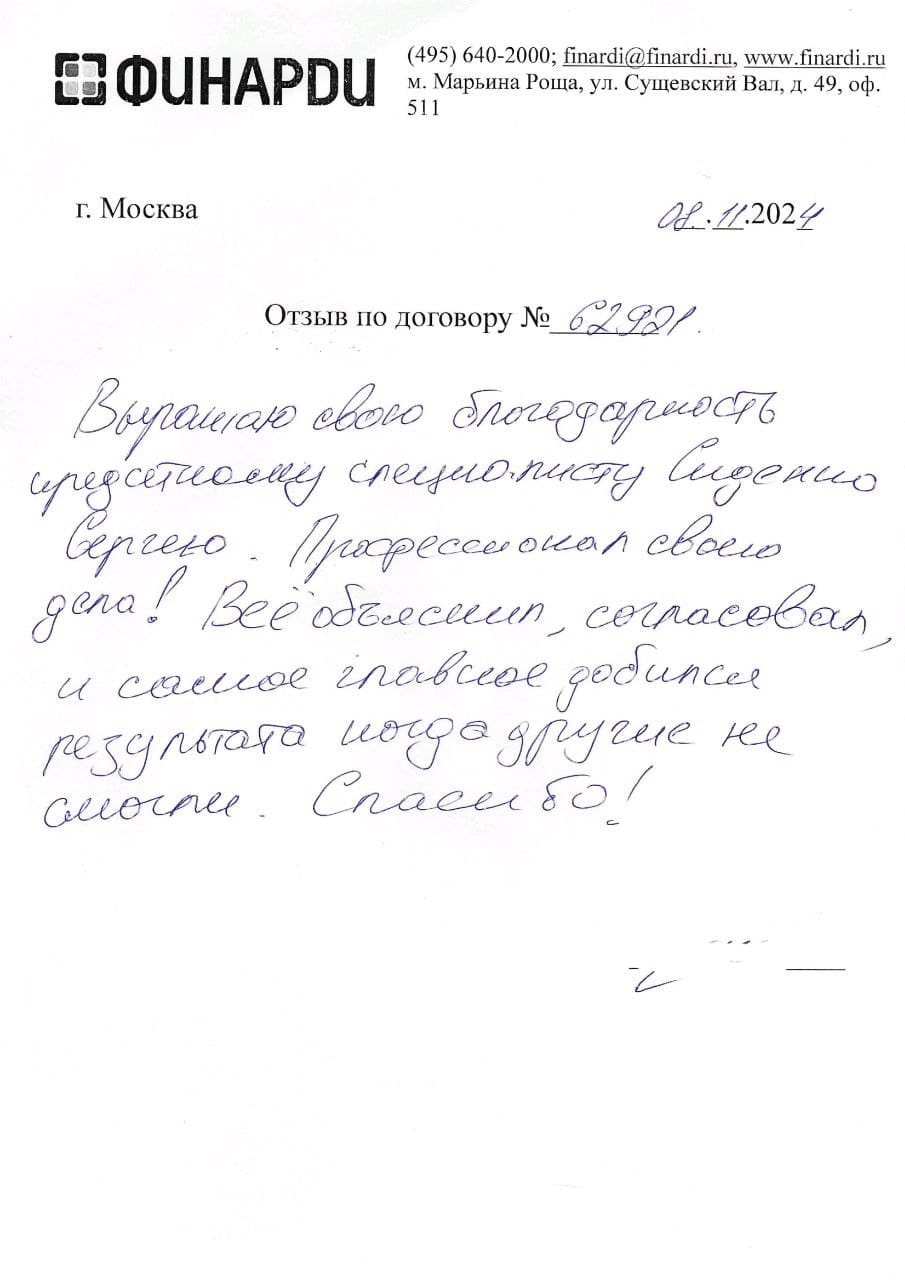 ФИНАРДИ
(495) 640-2000; finardi@finardi.ru, www.finardi.ru
м. Марьина Роща, ул. Сущевский Вал, д. 49, оф.
511
г. Москва
08.11.2024
Отзыв по договору № 62921.
Выражаю свою благодарность
кредитному специалисту Сиденко
Сергею. Профессионал своего
дела! Всё объяснил, согласовал,
и самое главное добился
результата когда другие не
смогли. Спасибо!